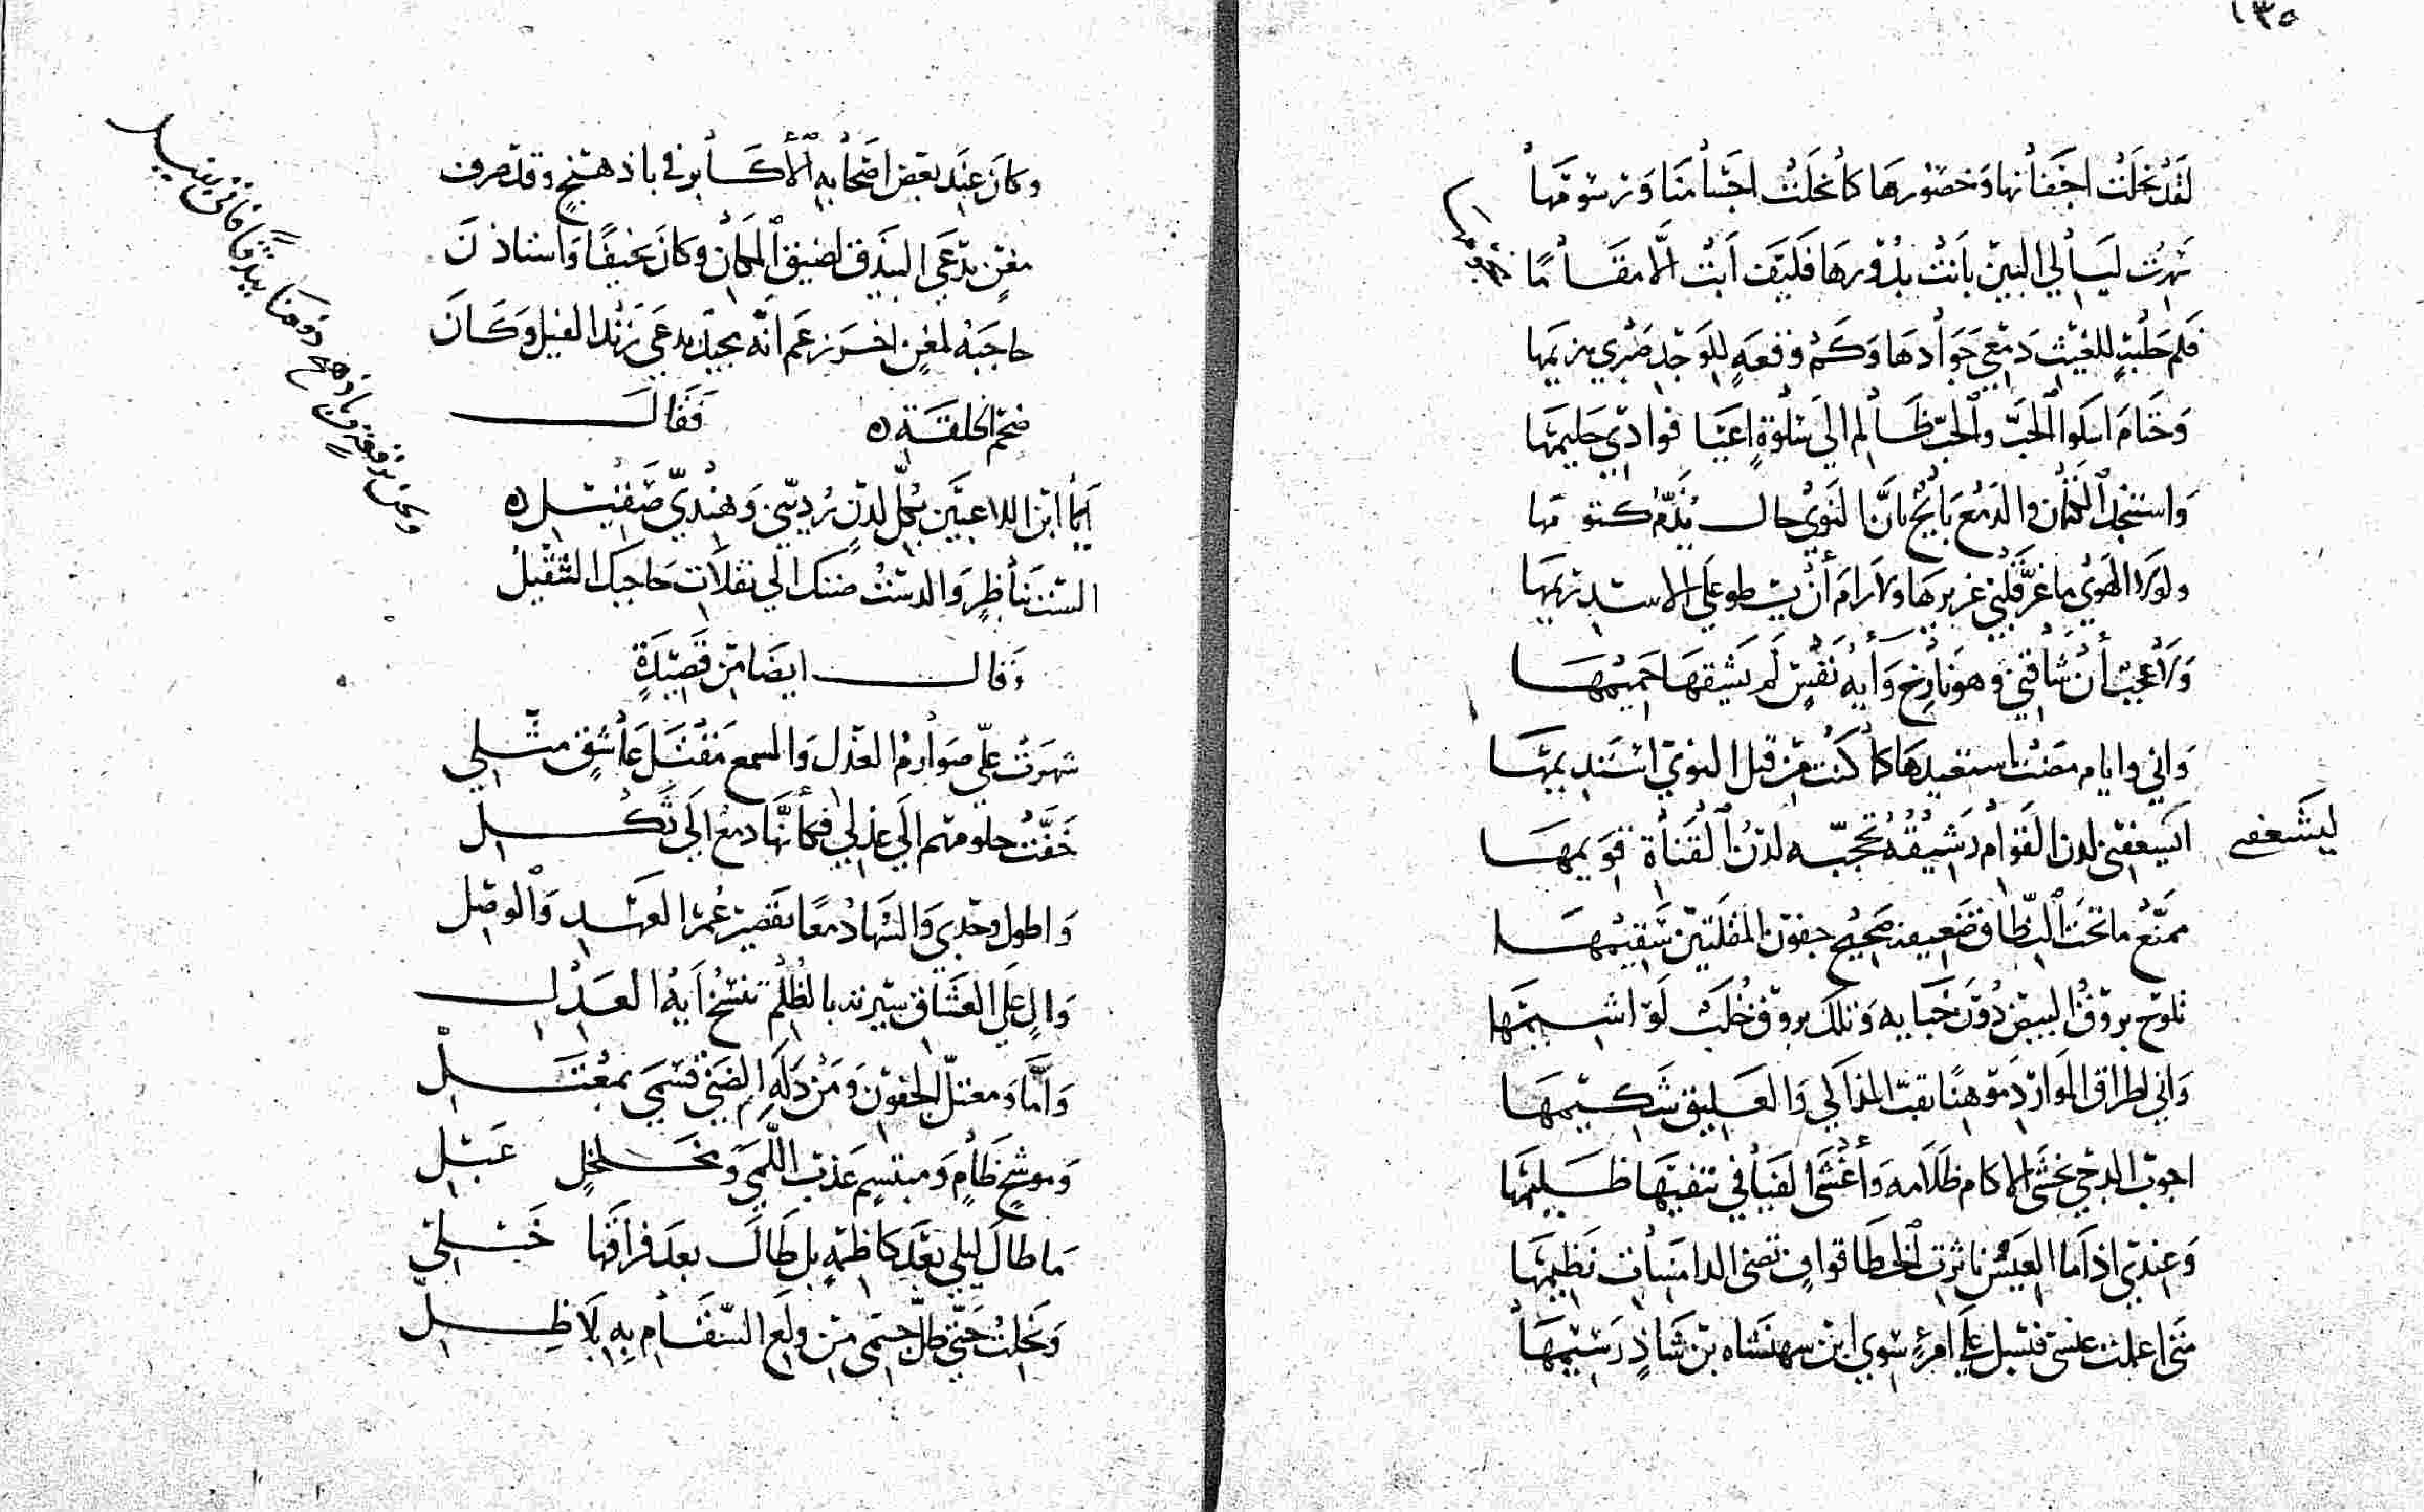 ١٣٥
لَقَدْ نَحَلَتْ اجْفَانُها وَخُصُورها كَما نَحَلَتْ اجْسَامُنَا وَرُسُومُهَا
لَيَالي البَيْنِ بانَتْ بُدُورهَا فَلَيْتَ أبَتْ إلَّا مقَامًا
فَلَم حَلْبَةٍ للغَيْثِ دَمْعِي جَوَادُهَا وَكَمْ وقعَةٍ للوَجْدِ صَبْرِي هزيمُها
وَحَتَّامَ اشكوا الحُبَّ والحُبُّ ظَالِم الى سَلْوَةٍ اعْيَا فوادي حليمُها
وَاسْتنجدُ الكِتْمَان والدَمْع بَائِحٌ بأنَّا لنوى حال يُذَمُّ كَتُومُهَا
ولولا الهَوَى ما غرَّ قَلْبي غريرهَا ولا رامَ أنْ يسْطو عَلَى الاسْد ريمُهَا
وَلا عَجبٌ أنْ شَاقَني وهو نَازِحٌ وَأيَّةُ نَفْسٍ لم يَشُقهَا حَمِيمُهَا
وَاني وايام مضَتْ استعيدهَا كما كنْت مِنْ قبل النوى اسْتَدِيمُهَا
ليَشْعَفني
لدن القَوَام رَشِيقُهُ تحجّبه لدْنُ القَنَاةِ قَويمُهَا
ممنَّعُ ما تَحْتَ النِّطاق ضَعِيفه صَحِيح جفون المُقْلَتَيْن سَقِيمُهَا
تلوح بروقُ البيض دُونَ خبَايه وَتلك بروق خُلَّبٌ لَوْ اشيمُهَا
وَاني لطراق الموارد موهنًا بقبّ المذاكي وَالعَليق شَكِيمُهَا
اجوبُ الدجى يخشَى الاكام ظَلَامه وَأغْشَى الفَيَافي تتقيهَا ظَليمُهَا
وَعِندي اذا ما العَيْسُ ناثرت الخُطَا قوافٍ تضئ الدامسَات نَظِيمُهَا
متى اعملت عنسى فسَبل عَلى امرئ سوى ابن شهنشاه بن شَاذٍ رَسِيمُهَا
وكانَ عِنْدَ بَعْضِ اصحَابه الأكَابر في باذهنجٍ وقد صرف
مغنٍ يُدْعَى البَيْذَق لضيق المكان وكانَ نحيفًا وَاستاذنَ
حاجبُهُ لمغنٍ اخر زعم انّه مجيد يدعى زند الفيل وَكَانَ
ضخم الخلقَة ه فَقَالَ
أيَا ابْن اللاعبَيْن بكلّ لدْنٍ رُدينيٍّ وَهِنْديٍّ صَقِيل ه
السْتَ بنَاظِرٍ وَالدسْتُ ضَنك الى نقلَات حَاجبك الثَّقِيلُ
ونحن برقعةٍ من باذهنج دوهنا بيذقًا فأتى بفيل
وَقال ايضَا مِنْ قَصِيْدَةٍ
شهَرتْ علَيّ صَوَارمُ العَذْل وَالسمع مَقْتَل عَاشِقٍ مثلي
خَفَّتْ حلومهم الَى عذلي فكأنَّها دمع الَى ثَكْل
وَاطول وجْدي وَالسُهَادُ معًا بقصير عُمر العَهْد وَالوَصْل
وَالٍ عَلَى العُشَّاق سيرته بالظُلم تَنْسَخُ آيَة العَدْل
وَأمَا وَمعتلّ الجفون وَمَنْ دَلَّهِ الضَنى قسَمي بمُعْتَلّ
وَموشحٍ ظَامٍ وَمبتسمٍ عَذب اللَّمى وَمخَلْخَلٍ عَبْل
مَا طالَ ليلي بَعْدَ كاظمةٍ بل طَالَ بعدَ فراقهَا خَبْلي
وَنَحِلتُ حتّى ظلّ جسْمي مِن ولع السّقَام بِهِ بِلَا ظِلّ